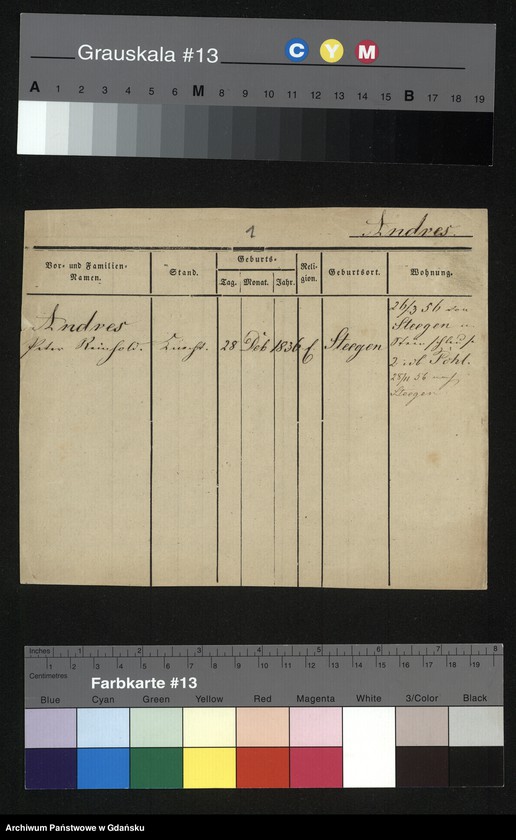 Grauskala #13 C Y M
A 1 2 3 4 5 6 M 8 9 10 11 12 13 14 15 B 17 18 19
1
Andres.
Vor- und Familien-Namen.
Stand.
Geburts-
Tag.
Monat.
Jahr.
Reli-gion.
Geburtsort.
Wohnung.
Andres
Peter Reinhold. Knecht. 28 Dcb 1836 Steegen
26/3 56 von
Steegen
2 Pohl.
56 nach
Steegen
Inches 1 2 3 4 5 6 7 8
1 2 3 4 5 6 7 8 9 10 11 12 13 14 15 16 17 18 19
Centimetres
Farbkarte #13
Blue Cyan Green Yellow Red Magenta White 3/Color Black
Archiwum Państwowe w Gdańsku